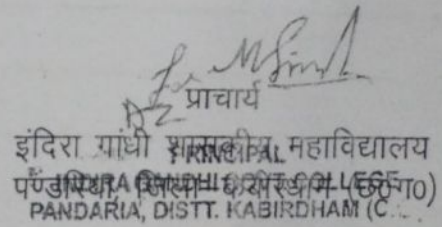 प्राचार्य
इंदिरा गांधी शासकीय महाविद्यालय
PRINCIPAL
पण्डरिया, जिला- कबीरधाम (छ0ग0)
INDIRA GANDHI GOVT. COLLEGE
PANDARIA, DISTT. KABIRDHAM (C.